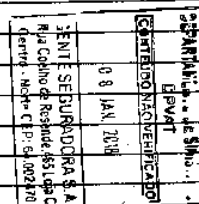 DEPARTAMENTO DE SINIS...
DPVAT
CONTEÚDO NÃO VERIFICADO
08 JAN. 2018
GENTE SEGURADORA S.A.
Rua Coelho de Resende, 465 Loja C
Centro - Norte CEP: 64.002-470